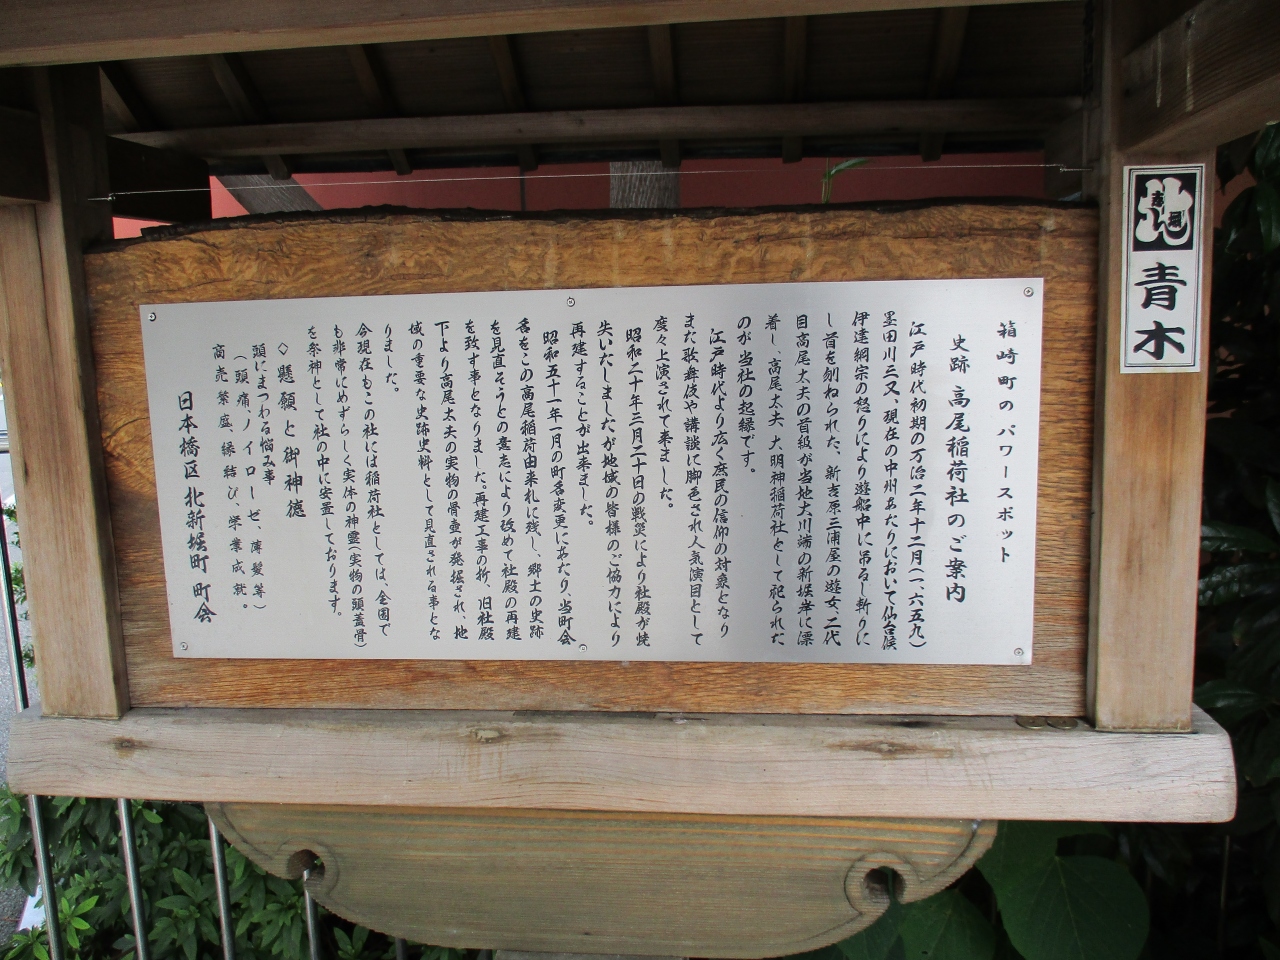 箱崎町のパワースポット
史跡 高尾稲荷社のご案内
江戸時代初期の万治二年十二月(一、六五九)
墨田川三又、現在の中州あたりにおいて仙台候
伊達綱宗の怒りにより遊船中に吊るし斬りに
し首を刎ねられた、新吉原三浦屋の遊女、二代
目高尾太夫の首級が当地大川端の新堀岸に漂
着し、高尾太夫 大明神稲荷社として祀られた
のが当社の起縁です。
江戸時代より広く庶民の信仰の対象となり
また歌舞伎や講談に脚色され人気演目として
度々上演されて来ました。
昭和二十年三月二十日の戦災により社殿が焼
失いたしましたが地域の皆様のご協力により
再建することが出来ました。
昭和五十一年一月の町名変更にあたり、当町会
名をこの高尾稲荷由来札に残し、郷土の史跡
を見直そうとの意志により改めて社殿の再建
を致す事となりました。再建工事の折、旧社殿
下より高尾太夫の実物の骨壺が発掘され、地
域の重要な史跡史料として見直される事とな
りました。
今現在もこの社には稲荷社としては、全国で
も非常にめずらしく実体の神霊(実物の頭蓋骨)
を祭神として社の中に安置しております。
◇懸願と御神徳
頭にまつわる悩み事
(頭痛、ノイローゼ、薄髪等)
商売繁盛、縁結び、学業成就。
日本橋区 北新堀町 町会
青木